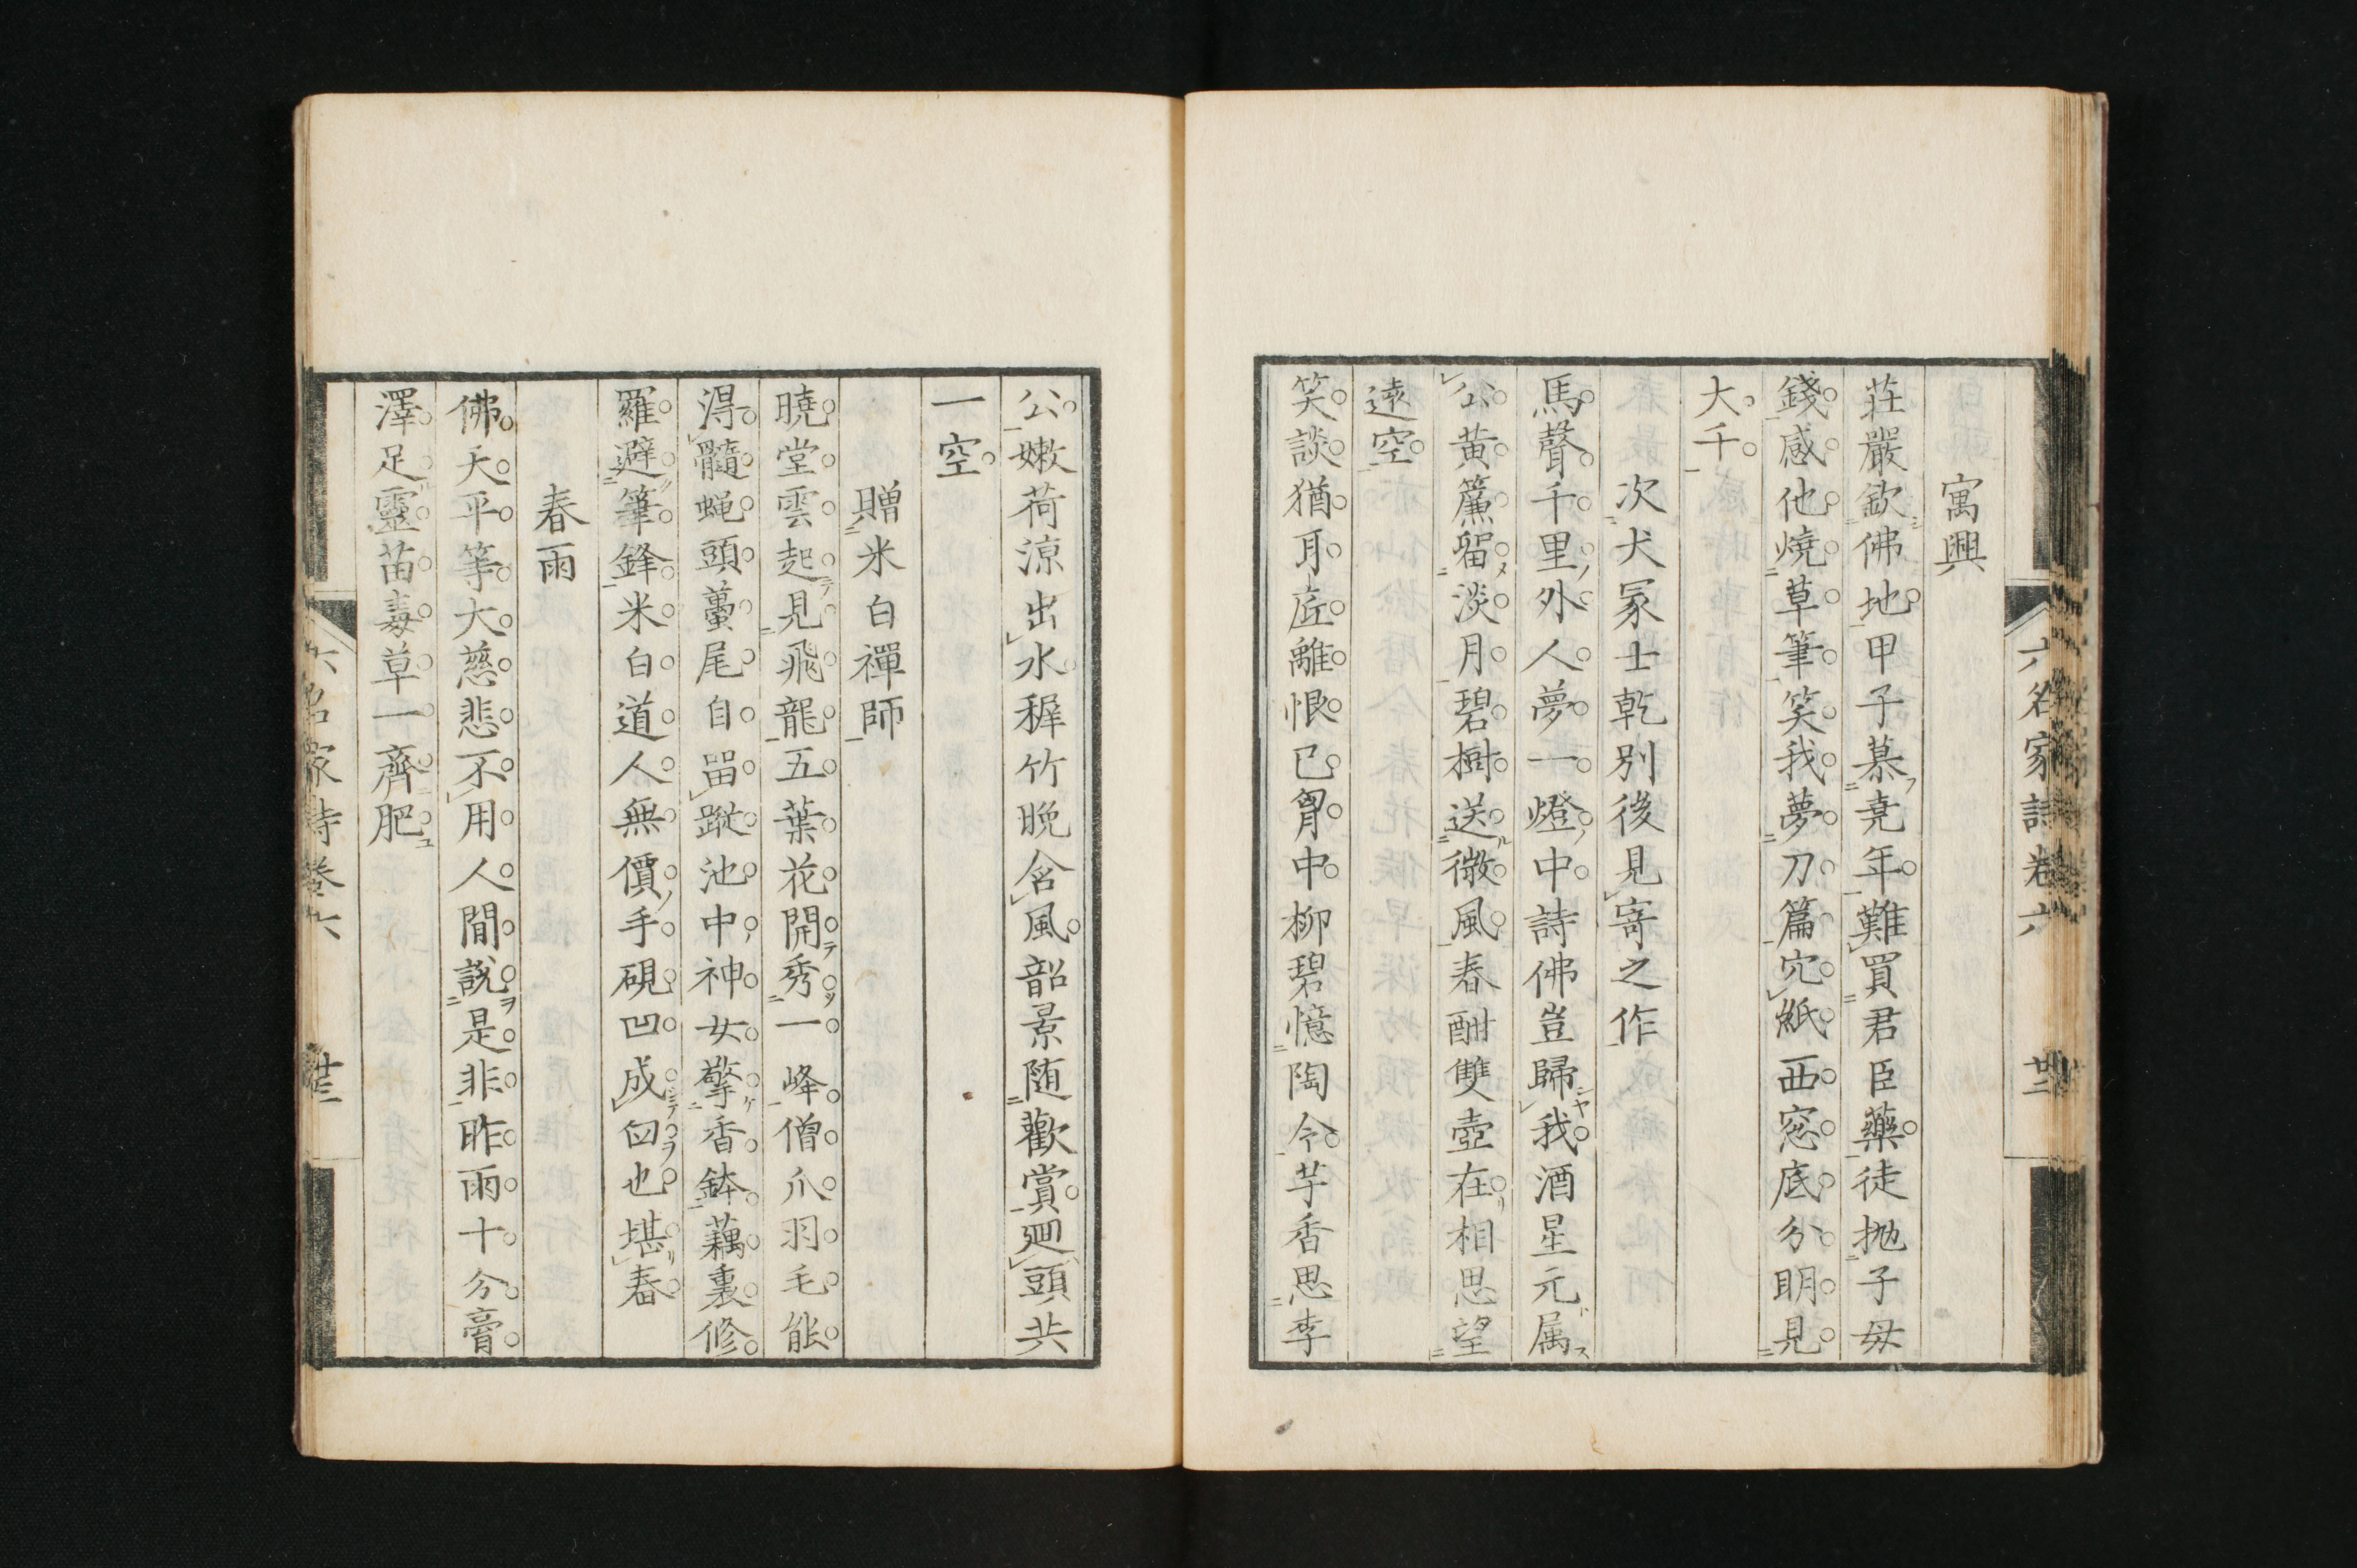 六名家詩卷六
廿二
寓興
莊嚴欽佛地甲子慕堯年難買君臣藥徒抛子母
錢感他燒草筆笑我夢刀篇穴紙西窓底分明見
大千
次犬冢士乾別後見寄之作
馬聲千里外人夢一燈中詩佛豈歸我酒星元属
公黄簾留淡月碧樹送微風春酣雙壺在相思望
遠空
笑談猶耳底離恨已胷中柳碧憶陶令芋香思李
公嫩荷涼出水穉竹晩含風韶景随歡賞廻頭共
一空
贈米白禪師
曉堂雲起見飛龍五葉花開秀一峰僧爪羽毛能
淂髓蝿頭蠆尾自留蹤池中神女擎香鉢藕裏修
羅避筆鋒米白道人無價手硯凹成臼也堪舂
春雨
佛天平等大慈悲不用人間說是非昨雨十分膏
澤足靈苗毒草一齊肥
六名家詩卷六
廿二